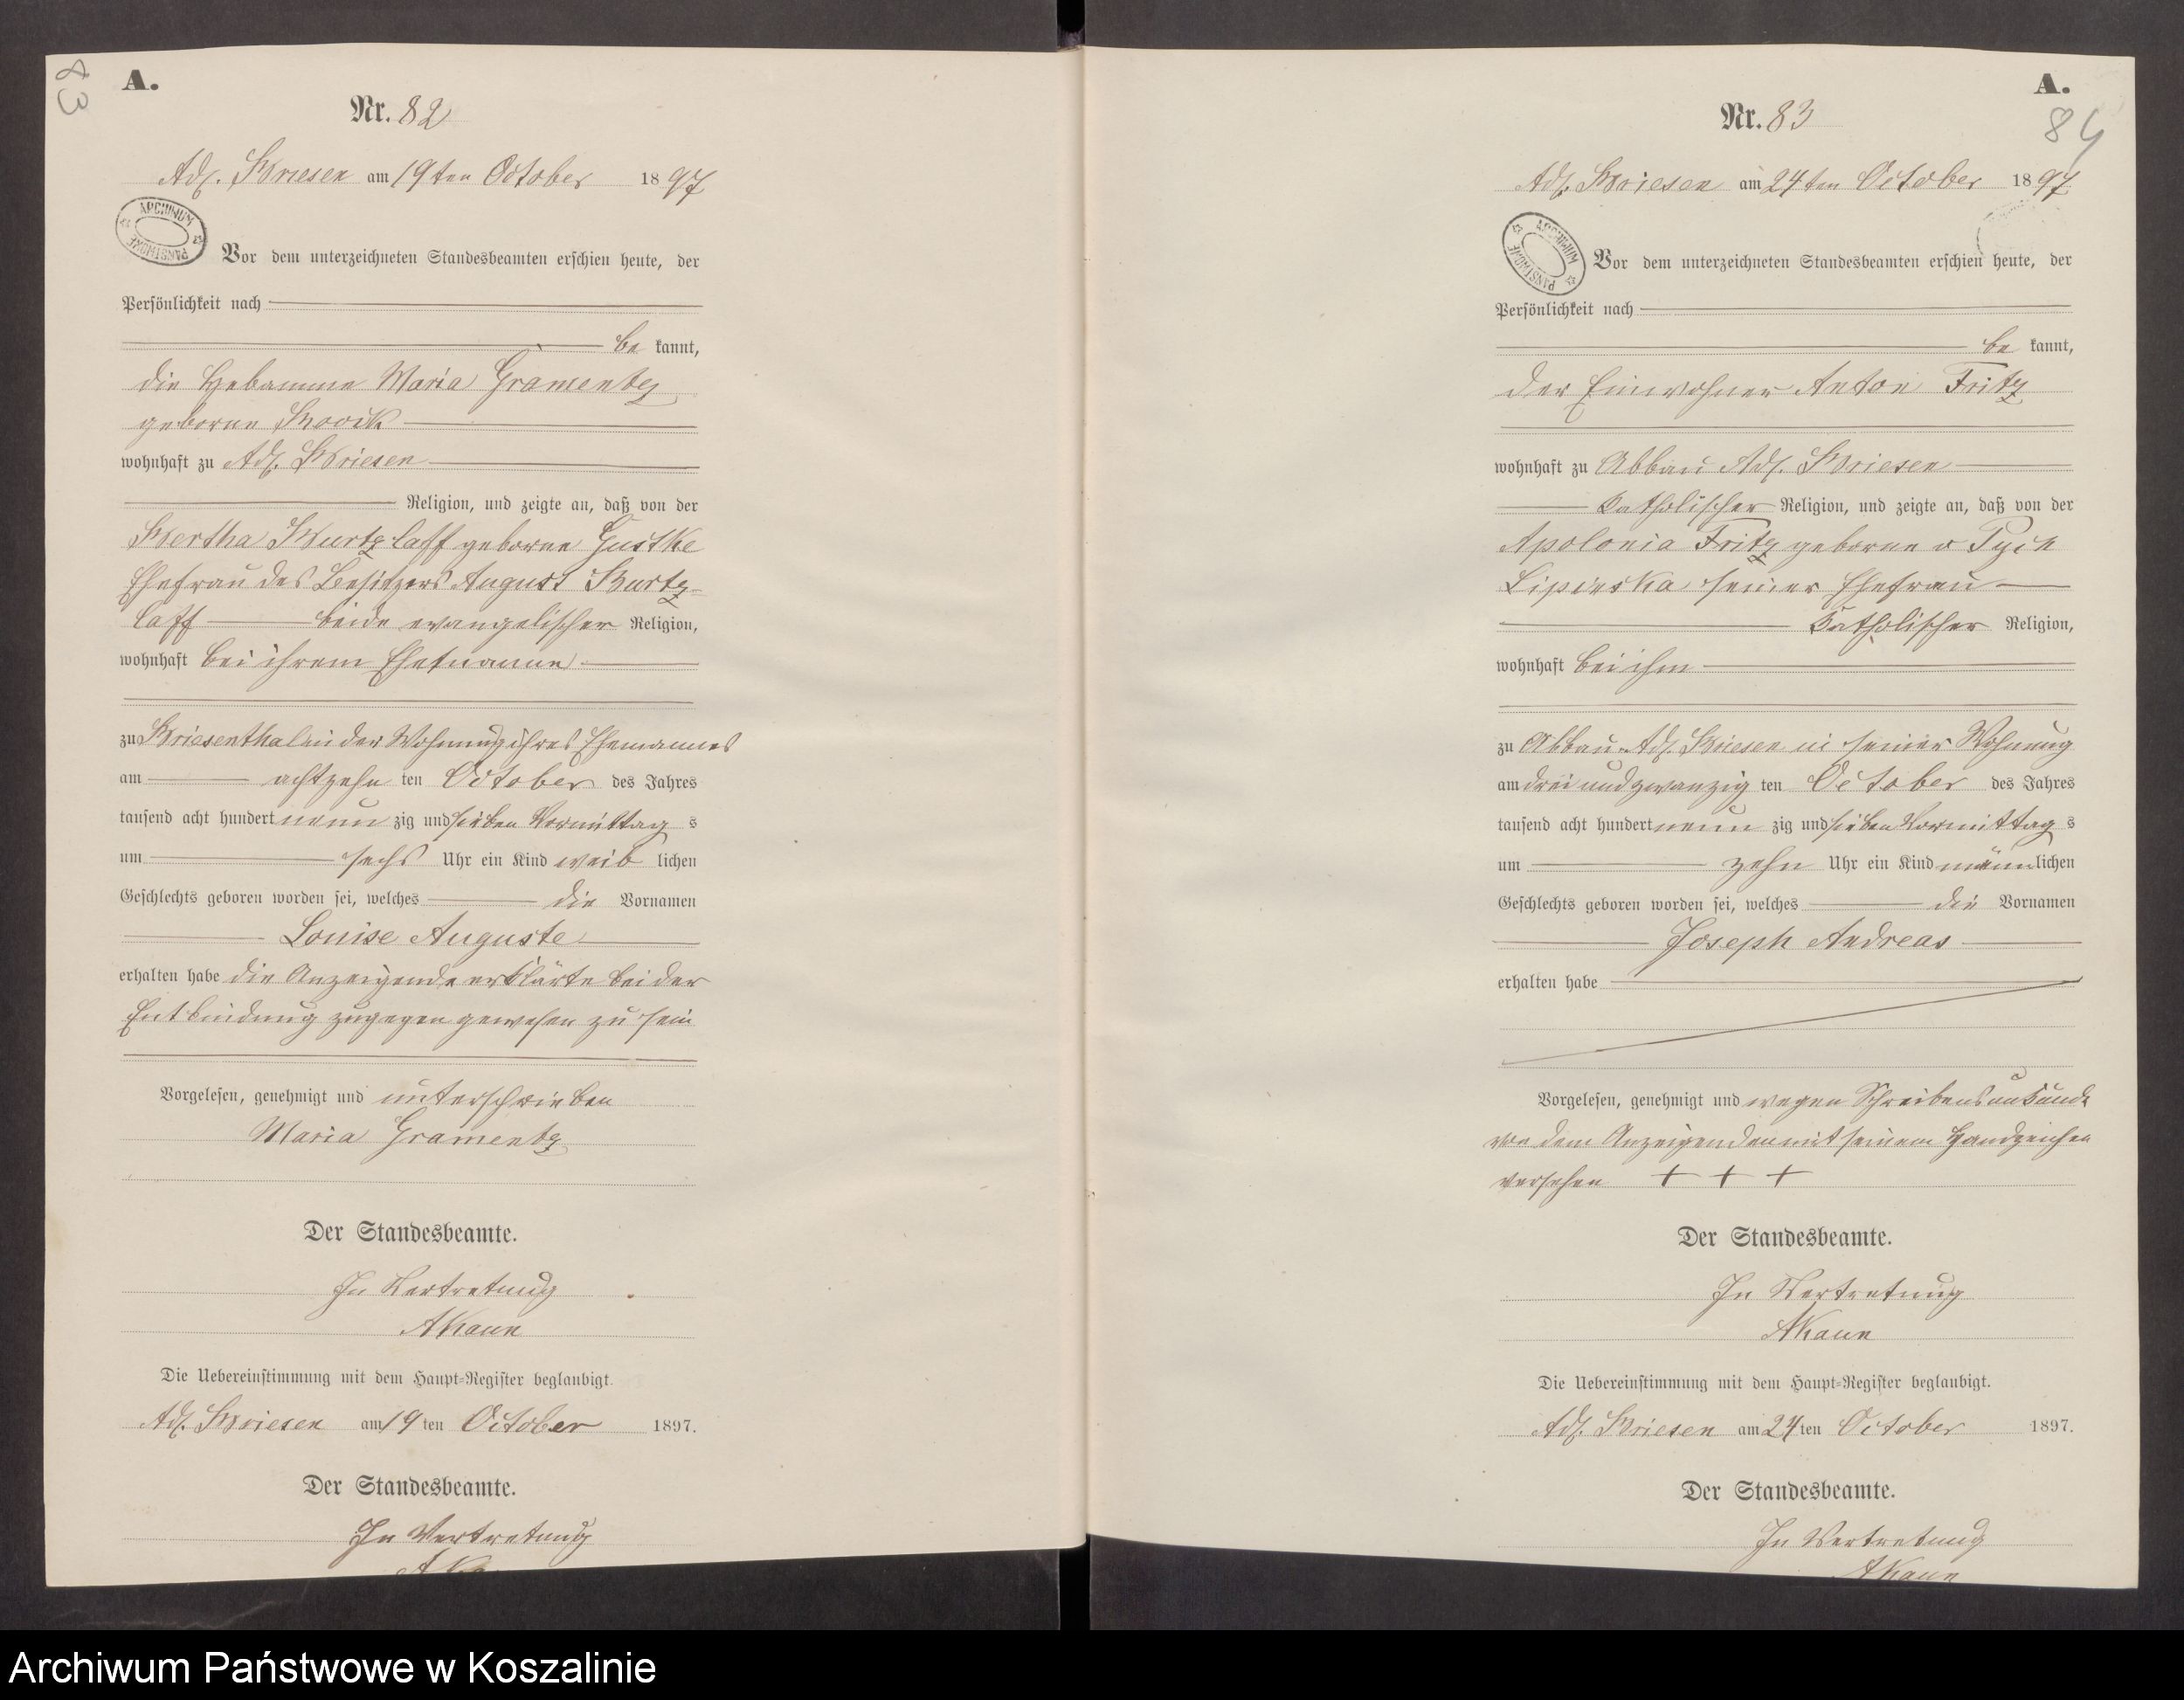 83
A.
Nr. 82
Adl. Briesen am 19ten October 1897
ARCHIWUM PAŃSTWOWE
Vor dem unterzeichneten Standesbeamten erschien heute, der
Persönlichkeit nach
be kannt,
die Hebamme Maria Gramentz
geborne
wohnhaft zu Adl. Briesen
Religion, und zeigte an, daß von der
Bertha Wurtzlaff geborne Gustke
Ehefrau des Besitzers August Wurtz-
laff beide evangelischer Religion,
wohnhaft bei ihrem Ehemanne
zu Briesenthal in der Wohnung ihres Ehemannes
am achtzehn ten October des Jahres
tausend acht hundert neun zig und sieben Vormittag s
um sechs Uhr ein Kind weib lichen
Geschlechts geboren worden sei, welches die Vornamen
Louise Auguste
erhalten habe die Anzeigende erklärte bei der
Entbindung zugegen gewesen zu sein
Vorgelesen, genehmigt und unterschrieben
Maria Gramentz
Der Standesbeamte.
In Vertretung
Die Uebereinstimmung mit dem Haupt-Register beglaubigt.
Adl. Briesen am 19 ten October 1897.
Der Standesbeamte.
In Vertretung
A.
84
Nr. 83
Adl. Briesen am 24ten October 1897
ARCHIWUM PAŃSTWOWE
Vor dem unterzeichneten Standesbeamten erschien heute, der
Persönlichkeit nach
be kannt,
der Einwohner Anton Fritz
wohnhaft zu Abbau Adl. Briesen
katholischer Religion, und zeigte an, daß von der
Apolonia Fritz geborne
seiner Ehefrau
katholischer Religion,
wohnhaft bei ihm
zu Abbau Adl. Briesen in seiner Wohnung
am drei und zwanzig ten October des Jahres
tausend acht hundert neun zig und sieben Vormittag s
um zehn Uhr ein Kind männ lichen
Geschlechts geboren worden sei, welches die Vornamen
Joseph Andreas
erhalten habe
Vorgelesen, genehmigt und wegen Schreibensunkunde
von dem Anzeigenden mit seinem Handzeichen
versehen + + +
Der Standesbeamte.
In Vertretung
Die Uebereinstimmung mit dem Haupt-Register beglaubigt.
Adl. Briesen am 24 ten October 1897.
Der Standesbeamte.
In Vertretung
Archiwum Państwowe w Koszalinie